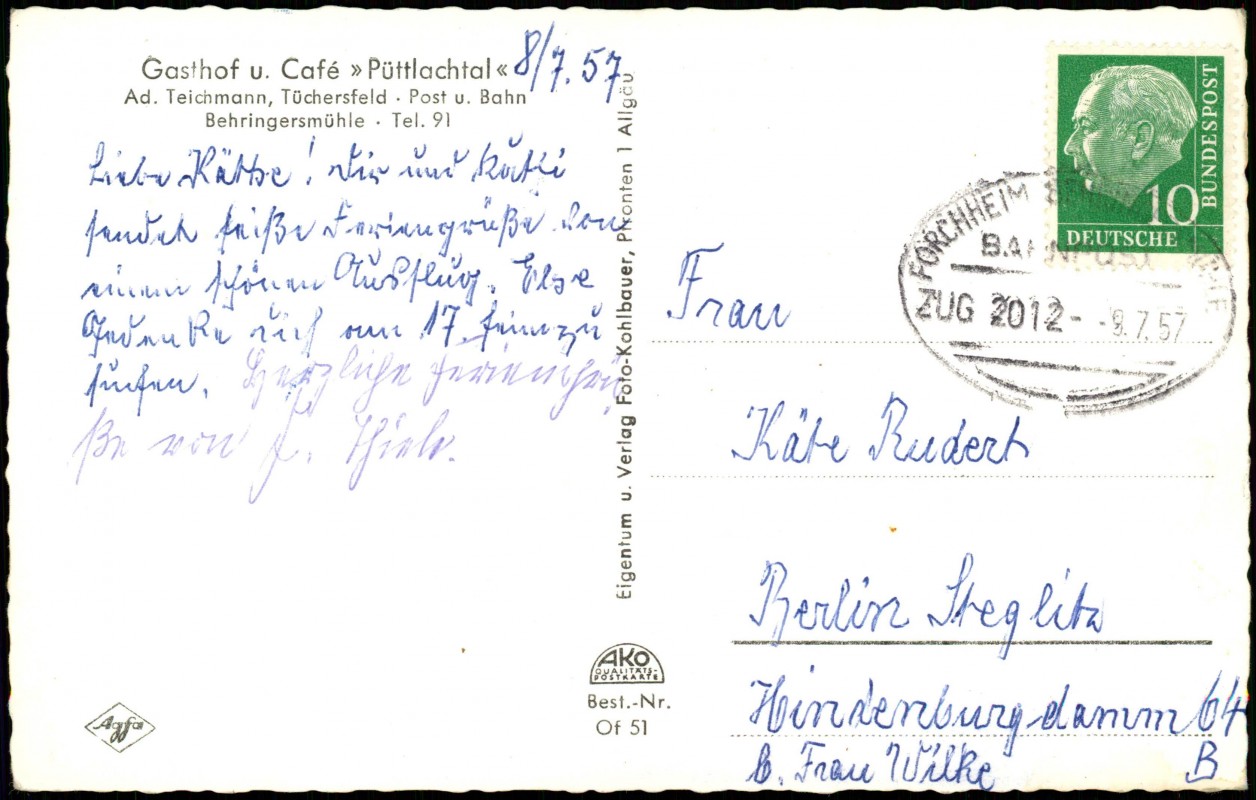 Gasthof u. Café »Püttlachtal«
Ad. Teichmann, Tüchersfeld · Post u. Bahn
Behringersmühle · Tel. 91
8/7.57
Liebe Käthe! Dir und Kätti
sendet heiße Feriengrüße von
einem schönen Ausflug. Else
Gedenke dich am 17. heimzu
suchen. Herzliche Feriengrü
ße von J. Thiele.
Eigentum u. Verlag Foto-Kohlbauer, Pfronten 1 Allgäu
AKO
QUALITÄTS-
POSTKARTE
Best.-Nr.
Of 51
Agfa
BUNDESPOST
10
DEUTSCHE
FORCHHEIM
BAHNPOST
ZUG 2012 - -8.7.57
Frau
Käte Rudert
Berlin Steglitz
Hindenburgdamm 64
b. Frau Wilke B